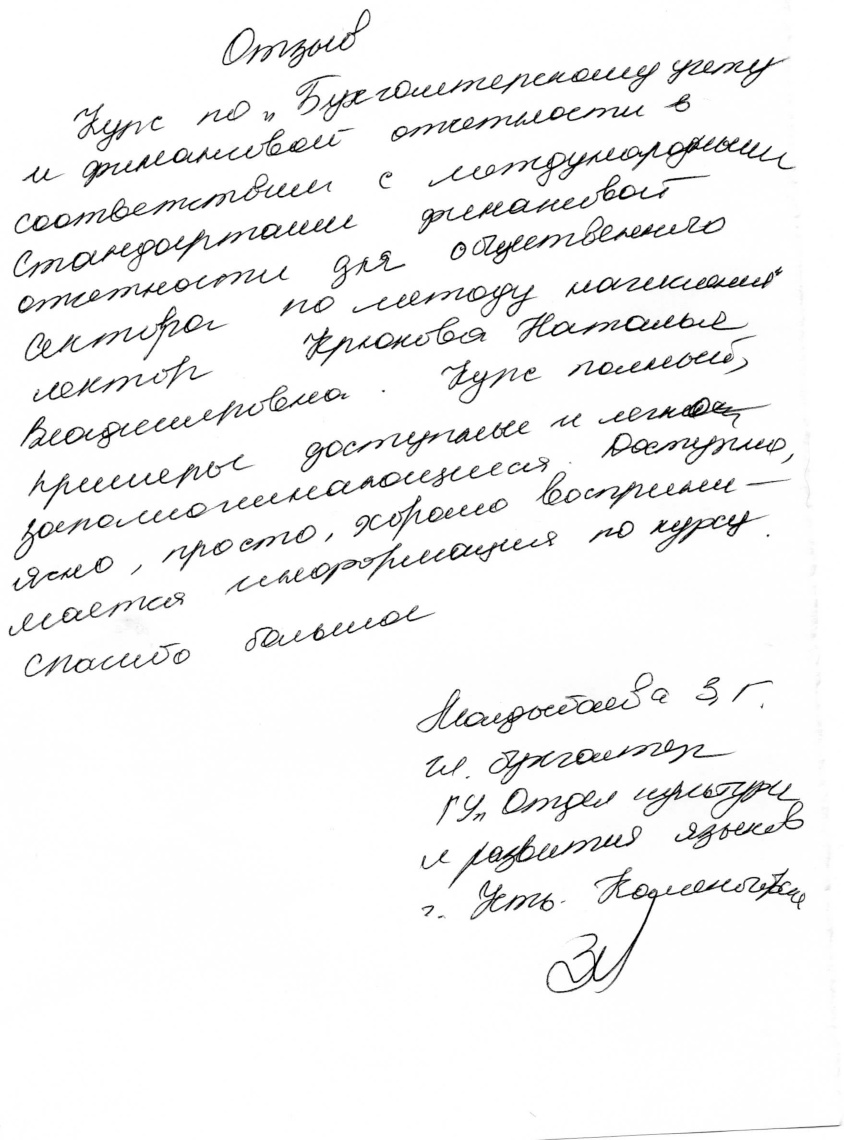 Отзыв
Курс по „Бухгалтерскому учету
и финансовой отчетности в
соответствии с международными
стандартами финансовой
отчетности для общественного
сектора по методу начисления“
лектор Крюкова Наталья
Владимировна. Курс полный,
примеры доступные и легко
запоминающиеся. Доступно,
ясно, просто, хорошо восприни-
мается информация по курсу.
Спасибо большое
Молдыбаева З.Г.
гл. бухгалтер
ГУ „Отдел культуры
и развития языков
г. Усть-Каменогорска